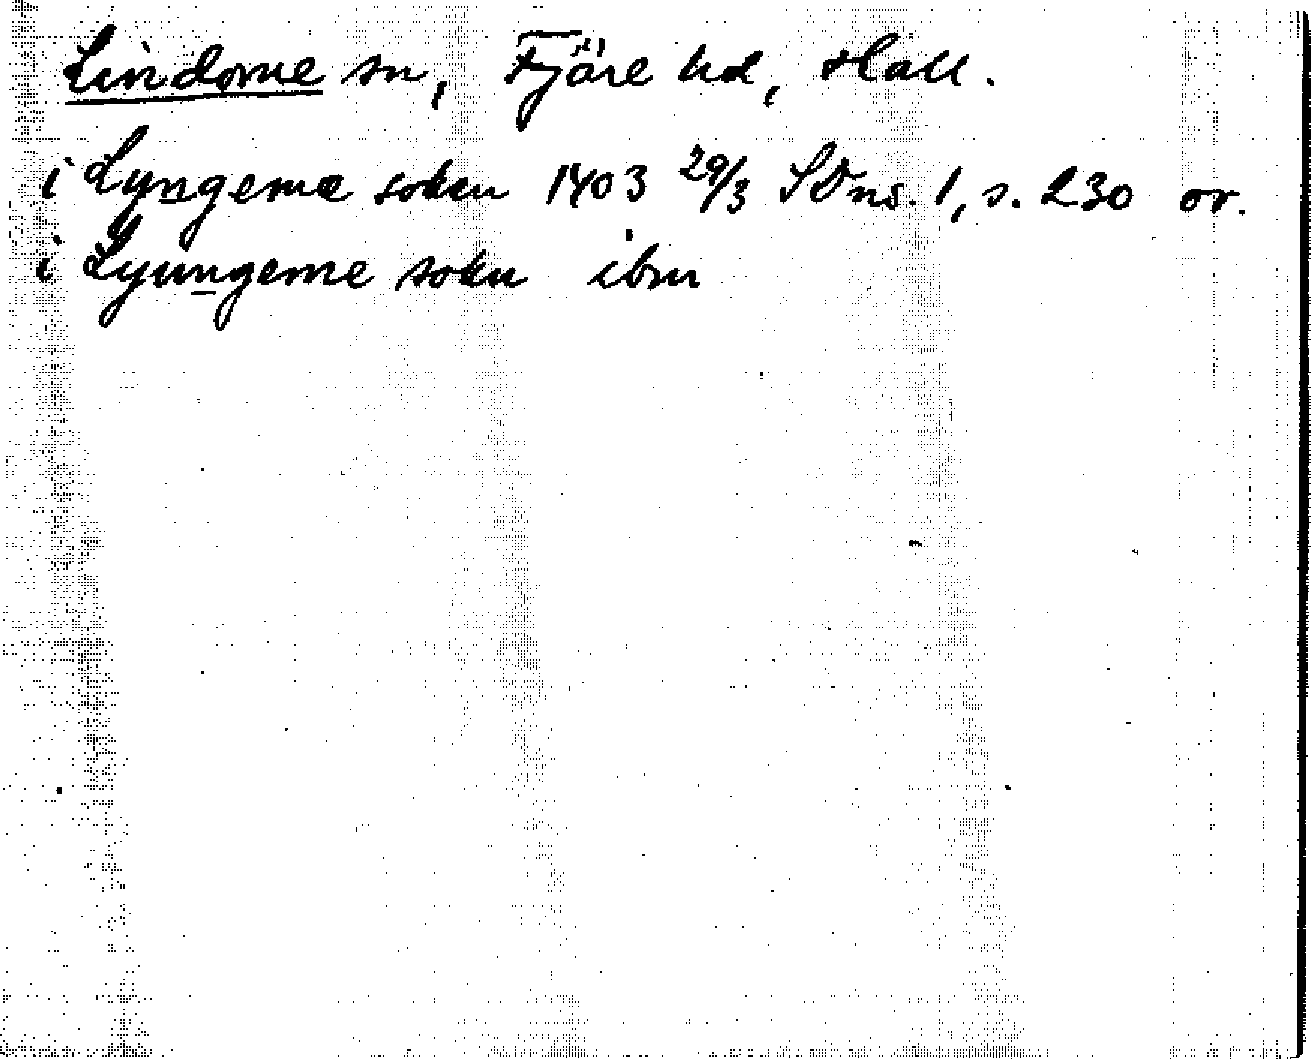 Lindome sn, Fjäre hd, Hall.
i Lyngemæ soken 1403 29/3 SDns. 1, s. 230 or.
i Lyungeme sokn ibm